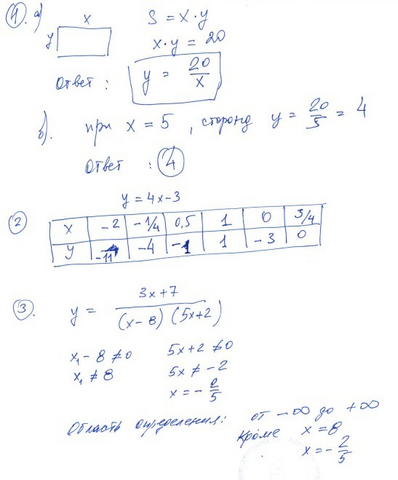 1. а) x S = x · y
y x · y = 20
Ответ: y = 20/x
б). при x = 5, сторона y = 20/5 = 4
Ответ: 4
y = 4x - 3
2 x -2 -1/4 0,5 1 0 3/4
y -11 -4 -1 1 -3 0
3. y = (3x+7)/((x-8)(5x+2))
x₁ - 8 ≠ 0 5x+2 ≠ 0
x₁ ≠ 8 5x ≠ -2
x = -2/5
Область определения: от -∞ до +∞
кроме x = 8
x = -2/5